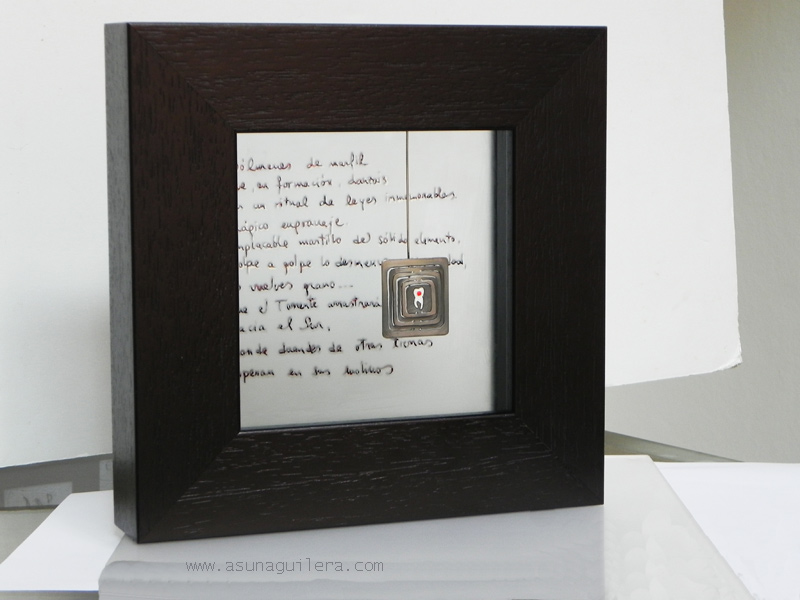 ólmenes de marfil
ue, en formación, danzáis
n un ritual de leyes inmemorables.
ágico engranaje.
mplacable martillo del sólido elemento,
olpe a golpe lo desmenu dad,
vuelves grano...
ue el Torrente arrastrará
acia el Sur,
ande duendes de otras tierras
operan en tus molinos
www.asunaguilera.com